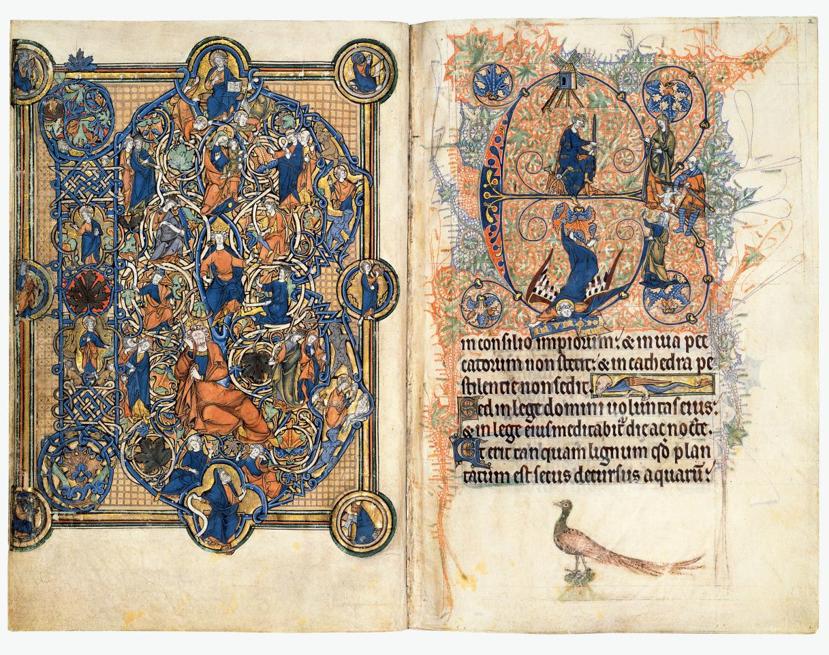 in consilio impiorum: & in uia pec
catorum non stetit: & in cathedra pe
stilentie non sedit
Sed in lege domini uoluntas eius:
& in lege eius meditabit᷑ die ac nocte.
Et erit tanquam lignum qd̄ plan
tatum est secus decursus aquarū: